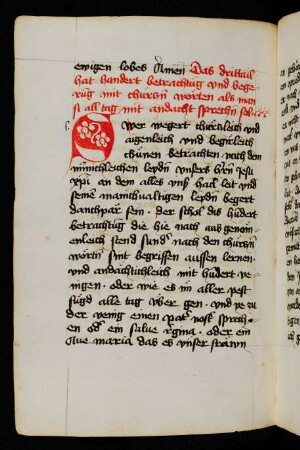 ewigen lobes Amen Das drittail
hat hundert betrachtug vnd bege
rūg mit churtzn worten als man
si all tag mit andacht sprechn sol
Swer wegert chürtzleich vnd
aigenleich vnd begirleich
chünen betrachten nach dem
minnichleichen leydn vnsers hñ Jesu
xpi an dem alles vnß hail leit vnd
seinē manichualtigen leydn begert
danchpär sein . der schol dis hūdert
betrachtūg die hie nach aus genom
enleich stend sundˢ nach den churtzn
wörtn sint begriffen aussen lernen .
vnd andächtichleich mit hūdert ve
nigen . oder wie es in aller pest
fügd alle tag vber gen . vnd ye zu
der venig einen patˢ nostˢ sprech
en odˢ ein salue rˢgina . oder ein
Aue maria das es vnser frawn